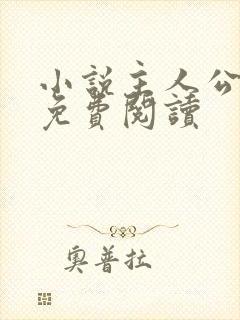 小説主人公
免費閱讀
奧普拉